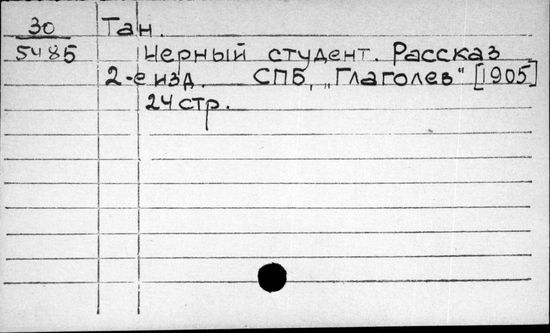 30 Тан.
5485 Черный студент. Рассказ
2-е изд. СПБ, „Глаголев" [1905]
24 стр.